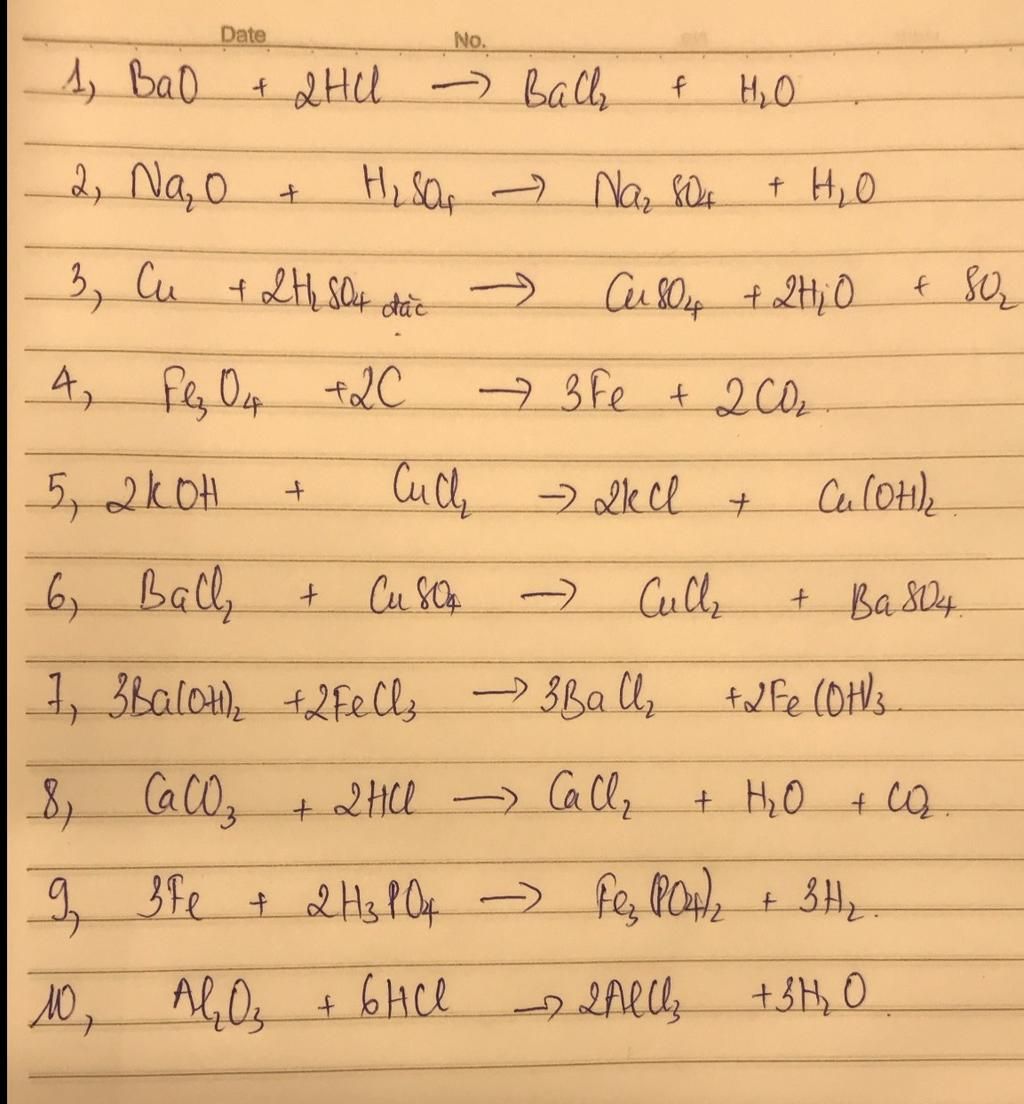 Date No.
1, BaO + 2HCl → BaCl₂ + H₂O .
2, Na₂O + H₂SO₄ → Na₂SO₄ + H₂O
3, Cu + 2H₂SO₄ đặc → CuSO₄ + 2H₂O + SO₂
4, Fe₃O₄ +2C → 3Fe + 2CO₂.
5, 2KOH + CuCl₂ → 2KCl + Cu(OH)₂.
6, BaCl₂ + CuSO₄ → CuCl₂ + BaSO₄.
7, 3Ba(OH)₂ +2FeCl₃ → 3BaCl₂ +2Fe(OH)₃.
8, CaCO₃ + 2HCl → CaCl₂ + H₂O + CO₂.
9, 3Fe + 2H₃PO₄ → Fe₃(PO₄)₂ + 3H₂.
10, Al₂O₃ + 6HCl → 2AlCl₃ +3H₂O.